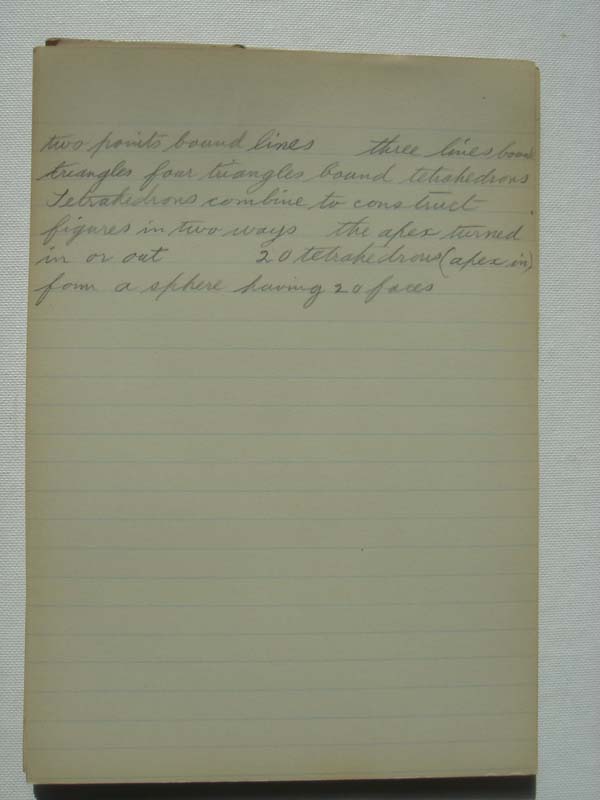 two points bound lines three lines bound
triangles four triangles bound tetrahedrons
Tetrahedrons combine to construct
figures in two ways the apex turned
in or out 20 tetrahedrons (apex in)
form a sphere having 20 faces